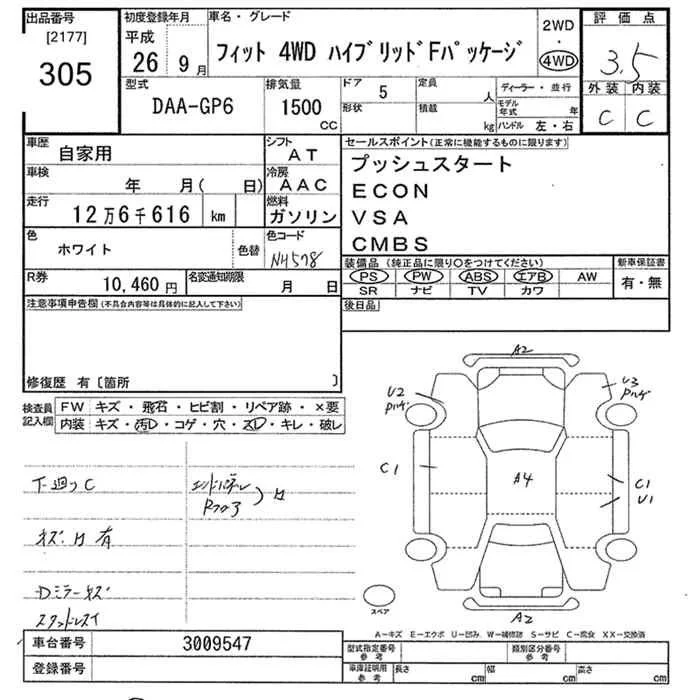 出品番号
[2177]
305
初度登録年月
平成
26 9月
車名・グレード
フィット 4WD ハイブリッドFパッケージ
2WD
4WD
評価点
3.5
外装 内装
C C
型式
DAA-GP6
排気量
1500
CC
ドア 5
形状
定員 人
積載 kg
ディーラー・並行
モデル年式 年
ハンドル 左・右
車歴
自家用
シフト
AT
車検
年 月( 日)
冷房
AAC
走行
12万6千616 km
燃料
ガソリン
色
ホワイト
色替
色コード
NH578
R券
10,460円
名変通知期限
月 日
セールスポイント(正常に機能するものに限ります)
プッシュスタート
ECON
VSA
CMBS
装備品(純正品に限り○をつけてください)
PS PW ABS エアB AW
SR ナビ TV カワ
新車保証書
有・無
後日品
注意事項申告欄(不具合内容等は具体的に記入して下さい)
修復歴 有〔箇所 〕
検査員
記入欄
FW キズ・飛石・ヒビ割・リペア跡・×要
内装 キズ・汚レ・コゲ・穴・スレ・キレ・破レ
下廻りC
有
Dミラーキズ
A2
U2
U3
C1
A4
C1
U1
A2
スペア
A−キズ E−エクボ U−凹み W−補修跡 S−サビ C−腐食 XX−交換済
車台番号
3009547
登録番号
型式指定番号
参考
類別区分番号
参考
車庫証明用
参考
長さ cm
幅 cm
高さ cm